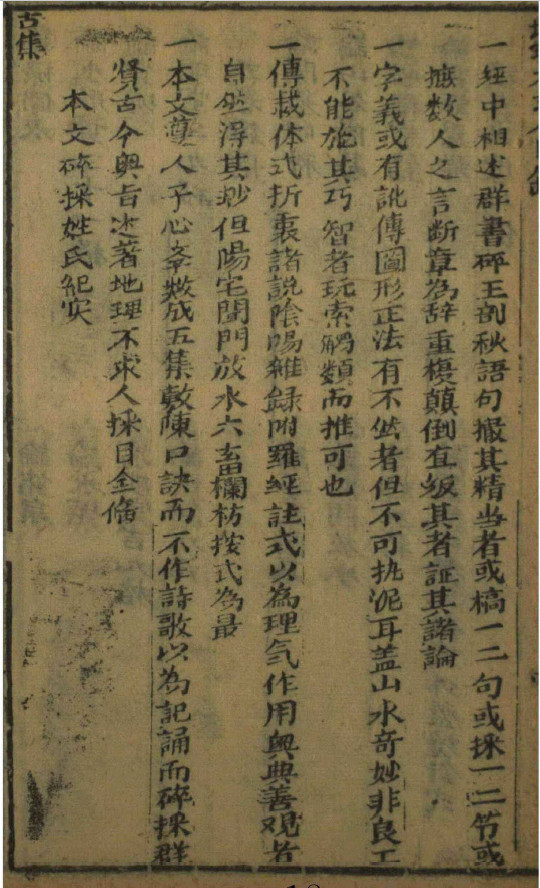 一經中相述群書碎玉剖秋語句撮其精当者或槁一二句或採一二節或
摭数人之言断章為辞重複顛倒宜級其者証其諸論
一字義或有訛傳圖形正法有不然者但不可执泥耳盖山水奇妙非良工
不能施其巧智者玩索觸類而推可也
一傳裁体式折衷諸説陰陽雜録附羅經註式以為理気作用奥典善观者
自然得其妙但陽宅開門放水六畜欄枋按式為最
一本文蕓人子心夆敉成五集敷陳口訣而不作詩歌以為記誦而碎採群
賢古今奥旨述著地理不求人採目全偹
本文碎採姓氏紀实
古集
12